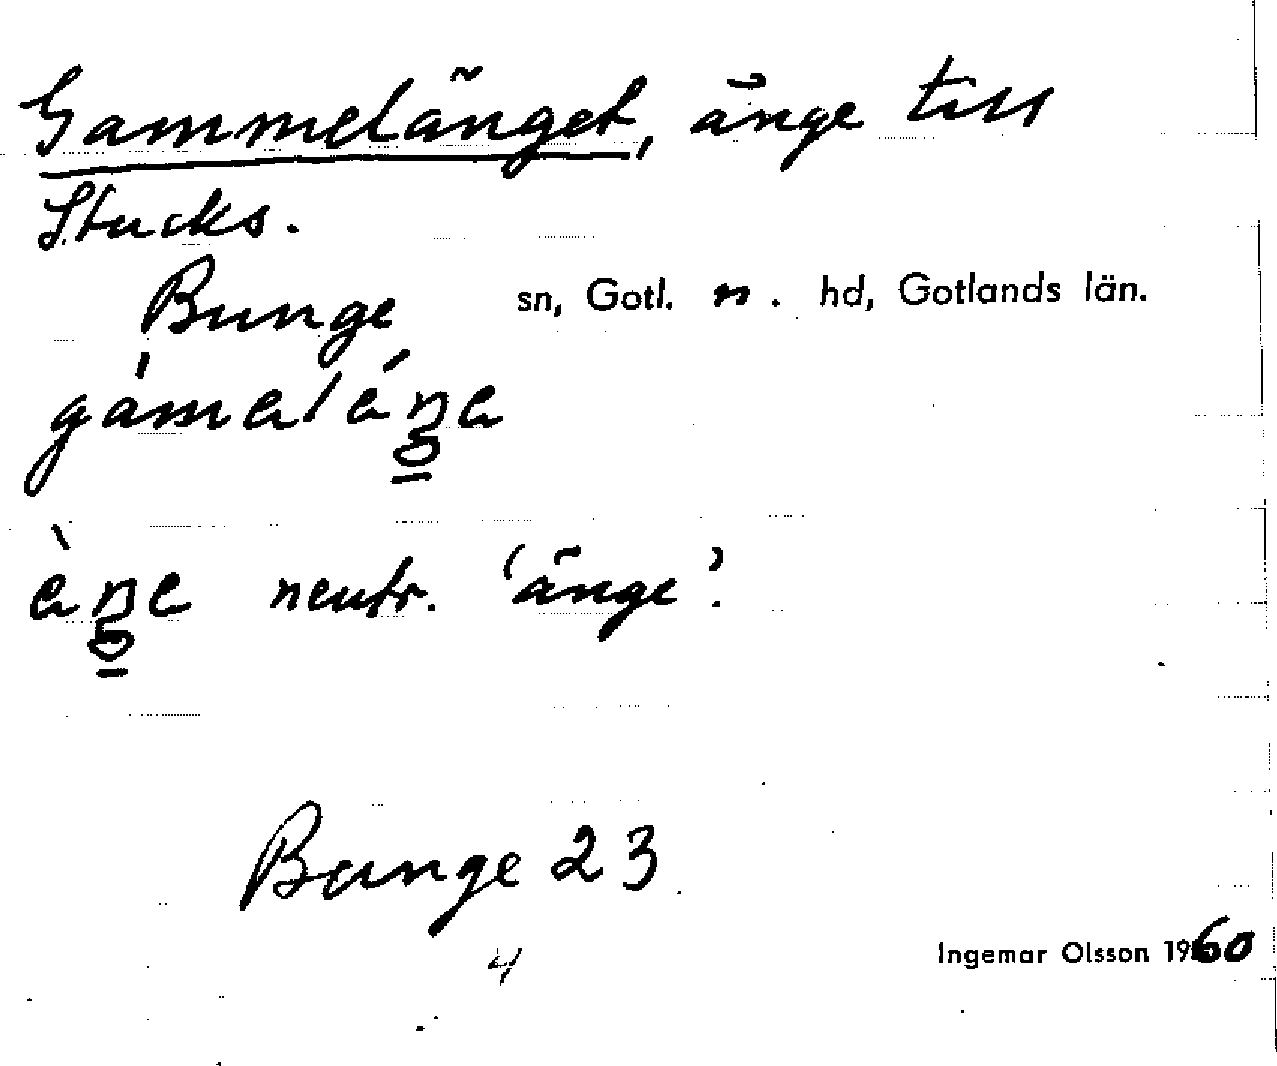 Gammelänget, änge till
Stucks.
Bunge sn, Gotl. n. hd, Gotlands län.
neutr. 'änge'.
Bunge 23
4
Ingemar Olsson 1960